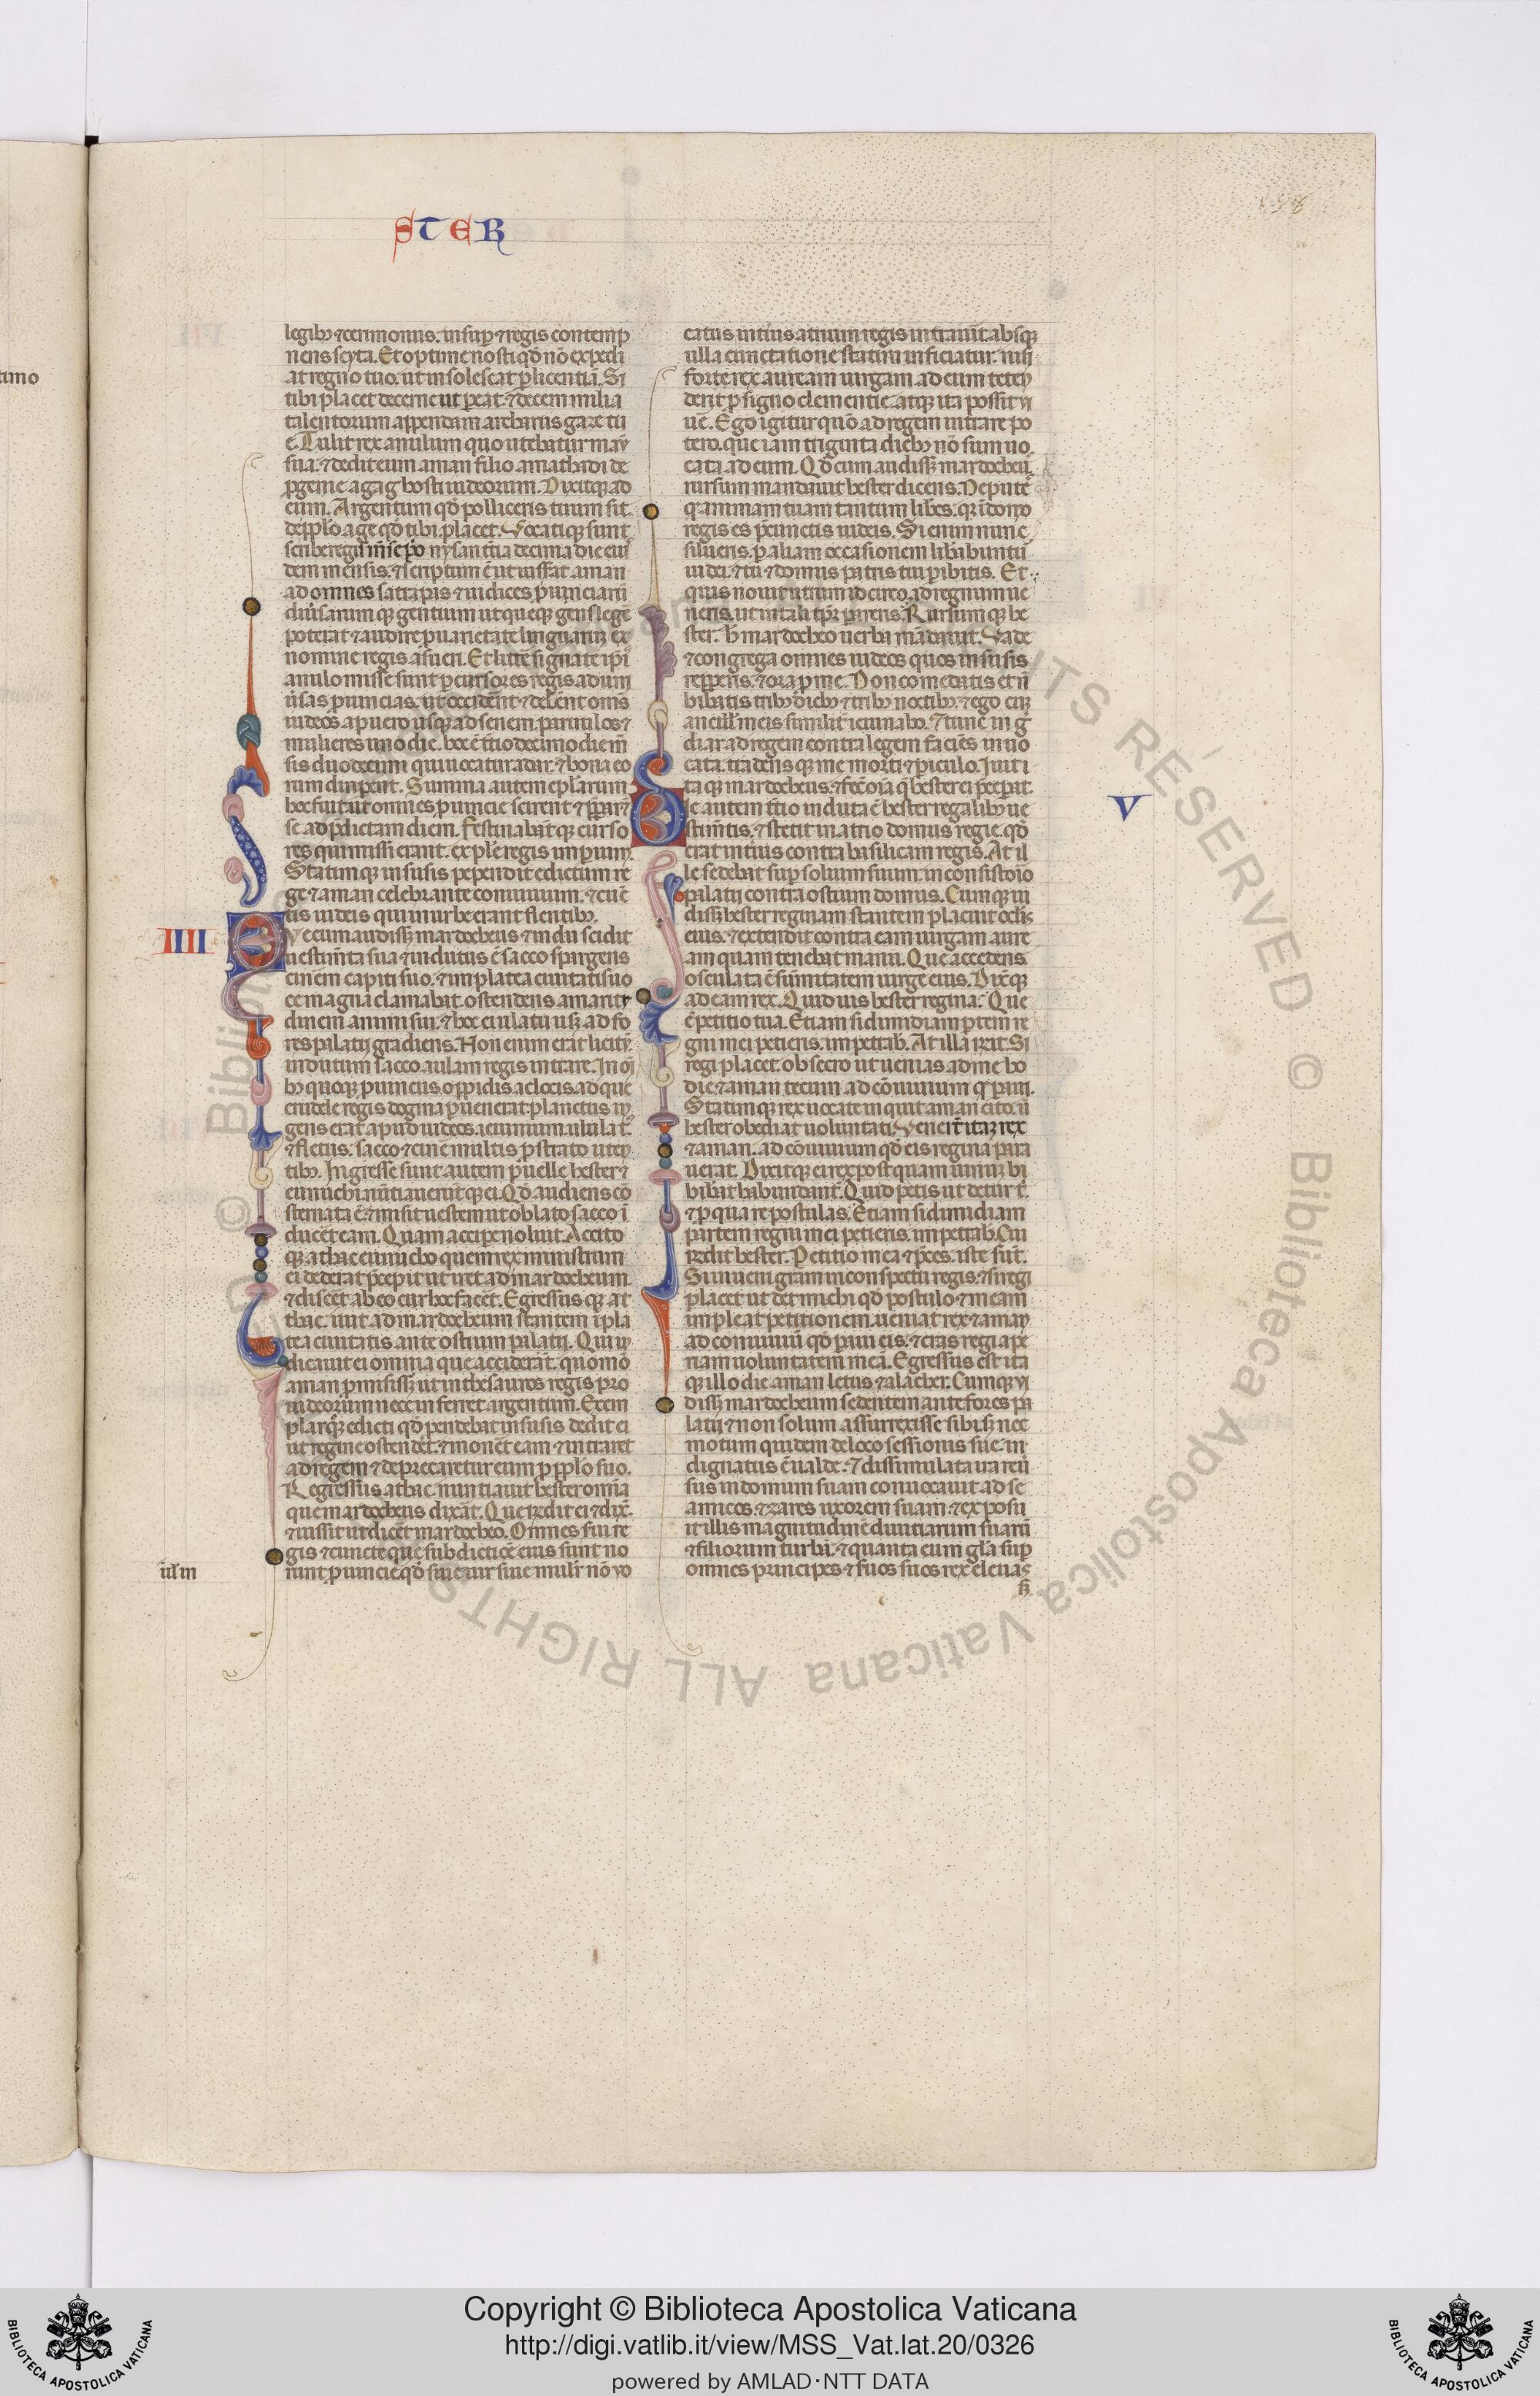 STER
legibꝫ ⁊ cerimoniis. insuꝑ ⁊ regis contemp
nens scyta. Et optime nosti qd̓ nō expedi
at regno tuo. ut insolescat ꝑ licentiā. Si
tibi placet decerne ut ꝑeat. ⁊ decem milia
talentorum appendam archariis gaze tu
e. Tulit rex anulum quo utebatur
sua. ⁊ dedit eum aman filio amathadi de
ꝓgenie agag hosti iudeorum. Dixitqꝫ ad
eum. Argentum qd̓ polliceris tuum sit.
de pplo age qd̓ tibi placet. Vocatiqꝫ sunt
scribe regis
dem mensis. ⁊ scriptum ē ut iusserat aman
ad omnes satrapas ⁊ iudices ꝓuinciarū
diuersarumqꝫ gentium ut queqꝫ gens legē
poterat ⁊ audire ꝓ uarietate linguarum ex
nomine regis asueri. Et littē signate ipī
anulo misse sunt ꝑ cursores regis ad uni
ūsas ꝓuincias. ut occidērt ⁊ delērent oms̄
iudeos a puero usqꝫ ad senem. paruulos ⁊
mulieres uno die. hoc ē
sis duodecimi qui uocatur adar. ⁊ bona eo
rum diriperēt. Summa autem eplārum
hec fuit ut omnes ꝓuincie scirent ⁊
se ad p̄dictam diem. Festinabātqꝫ curso
res qui missi erant. explere regis imperium.
Statimqꝫ in susis pependit edictum re
ge ⁊ aman celebrante conuiuium. ⁊ cunc
tis iudeis qui in urbe erant flentibꝫ.
IIII
Que cum audissꝫ mardocheus ⁊
uestimta sua ⁊ indutus ē sacco spargens
cinerem capiti suo. ⁊ in platea ciuitatis uo
ce magna clamabat. ostendens amaritu
dinem animi sui. ⁊ hoc eiulatu usqꝫ ad fo
res palatij gradiens. Non enim erat licitū
indutum sacco. aulam regis intrare. In
bꝫ quoqꝫ ꝓuinciis oppidis ac locis. ad que
crudele regis dogma ꝑuenerat. planctus in
gens erat apud iudeos. ieiunium. ululatꝰ.
⁊ fletus. sacco ⁊ cinere multis ꝓ strato uten
tibꝫ. Ingresse sunt autem puelle hester ⁊
eunuchi. nūtiauerūtqꝫ ei. Qd̓ audiens cō
sternata ē. ⁊ misit uestem ut oblato sacco ī
ducēt eam. Quam accipe noluit. Accito
qꝫ athac eunucho quem rex ministrum
ei dederat. p̄cepit ut iret ad mardocheum
⁊ discēt ab eo cur hoc facēt. Egressus qꝫ at
thac. iuit ad mardocheum stantem ī pla
tea ciuitatis ante ostium palatij. Qui in
dicauit ei omnia que acciderāt. quomō
aman ꝓmisissꝫ ut in thesauros regis pro
iudeorum nece inferret argentum. Exem
plar qꝫ edicti qd̓ pendebat in susis dedit ei
ut regine ostendēt. ⁊ monēt eam ut intraret
ad regem ⁊ deprecaretur eum ꝓ pplo suo.
Regressus athac. nuntiauit hester omnia
que mardocheus dixāt. Que rndit ei ⁊
⁊ iussit ut dicēt mardocheo. Omnes sui re
gis ⁊ cuncte que sub dictiōe eius sunt no
runt ꝓuincie. qd̓ siue uir siue mulir nō uo
catus interius atrium regis intrauit. absqꝫ
ulla cunctatione statim inficiatur. nisi
forte rex auream uirgam ad eum teten
derit ꝓ signo clementie. atqꝫ ita possit ui
uē. Ego igitur quō ad regem intrare po
tero. que iam triginta diebꝫ nō sum uo
cata ad eum. Qd̓ cum audissꝫ mardocheus.
rursum mandauit hester dicens. Ne putes
q animam tuam tantum libēs. qr in domo
regis es p̄ cunctis iudeis. Si enim nunc
silueris. ꝑ aliam occasionem libabuntur
iudei. ⁊ tu ⁊ domus patris tui ꝑibitis. Et
quis nouit utrum idcirco ad regnum ue
neris. ut in tali tpr pareris. Rursumqꝫ he
ster. h mardocheo uerba mādauit. Vade
⁊ congrega omnes iudeos quos in susis
repperis. ⁊ orate ꝓ me. Non comedatis et n̄
bibatis tribꝫ diebꝫ ⁊ tribꝫ noctibꝫ. ⁊ ego cum
ancillis meis similiter ieiunabo. ⁊ tunc in g
diar ad regem contra legem faciēs in uo
cata. tradensqꝫ me morti ⁊ ꝑiculo. Iuit i
taqꝫ mardocheus. ⁊ fecit oīa q̄ hester ei p̄cepat.
V
Die autem tertio induta ē hester regalibꝫ ue
stimtis. ⁊ stetit in atrio domus regie. qd̓
erat interius contra basilicam regis. At il
le sedebat suꝑ solium suum. in consistorio
palatij contra ostium domus. Cumqꝫ ui
dissꝫ hester reginam stantem placuit oclis
eius. ⁊ extendit contra eam uirgam aure
am quam tenebat manu. Que accedens
osculata ē summitatem uirge eius. Dixitqꝫ
ad eam rex. Quid uis hester regina. Que
ē petitio tua. Etiam si dimidiam ꝑtem re
gni mei petieris. impetrabis. At illa rndit. Si
regi placet. obsecro ut uenias ad me ho
die. ⁊ aman tecum ad cōuiuium q paraui.
Statimqꝫ rex uocate inquit aman cito. ut
hester obediat uoluntati. Venerunt itaqꝫ rex
⁊ aman. ad cōuiuium qd̓ eis regina para
uerat. Dixitqꝫ ei rex postquam uinum bi
berat habundanter. Quid petis ut detur tibi.
⁊ ꝓ qua re postulas. Etiam si dimidiam
partem regni mei petieris. impetrabis. Cui
rndit hester. Petitio mea ⁊ preces. iste sunt.
Si inueni gratiam in conspectu regis. ⁊ si regi
placet ut det michi qd̓ postulo ⁊ meam
impleat petitionem. ueniat rex ⁊ aman
ad conuiuiū qd̓ paraui eis. ⁊ cras regi ape
riam uoluntatem meā. Egressus est ita
qꝫ illo die aman letus ⁊ alacher. Cumqꝫ ui
dissꝫ mardocheum sedentem ante fores pa
latij. ⁊ non solum assurrexisse sibi. sꝫ nec
motum quidem de loco sessionis sue. in
dignatus ē ualde. ⁊ dissimulata ira reuer
sus in domum suam conuocauit ad se
amicos. ⁊ zares uxorem suam. ⁊ exposu
it illis magnitudinē diuitiarum suarū
⁊ filiorum turbā. ⁊ quanta eum gla suꝑ
omnes principes ⁊ suos rex eleuas
Copyright © Biblioteca Apostolica Vaticana
http://digi.vatlib.it/view/MSS_Vat.lat.20/0326
powered by AMLAD·NTT DATA
BIBLIOTECA APOSTOLICA VATICANA
BIBLIOTECA APOSTOLICA VATICANA